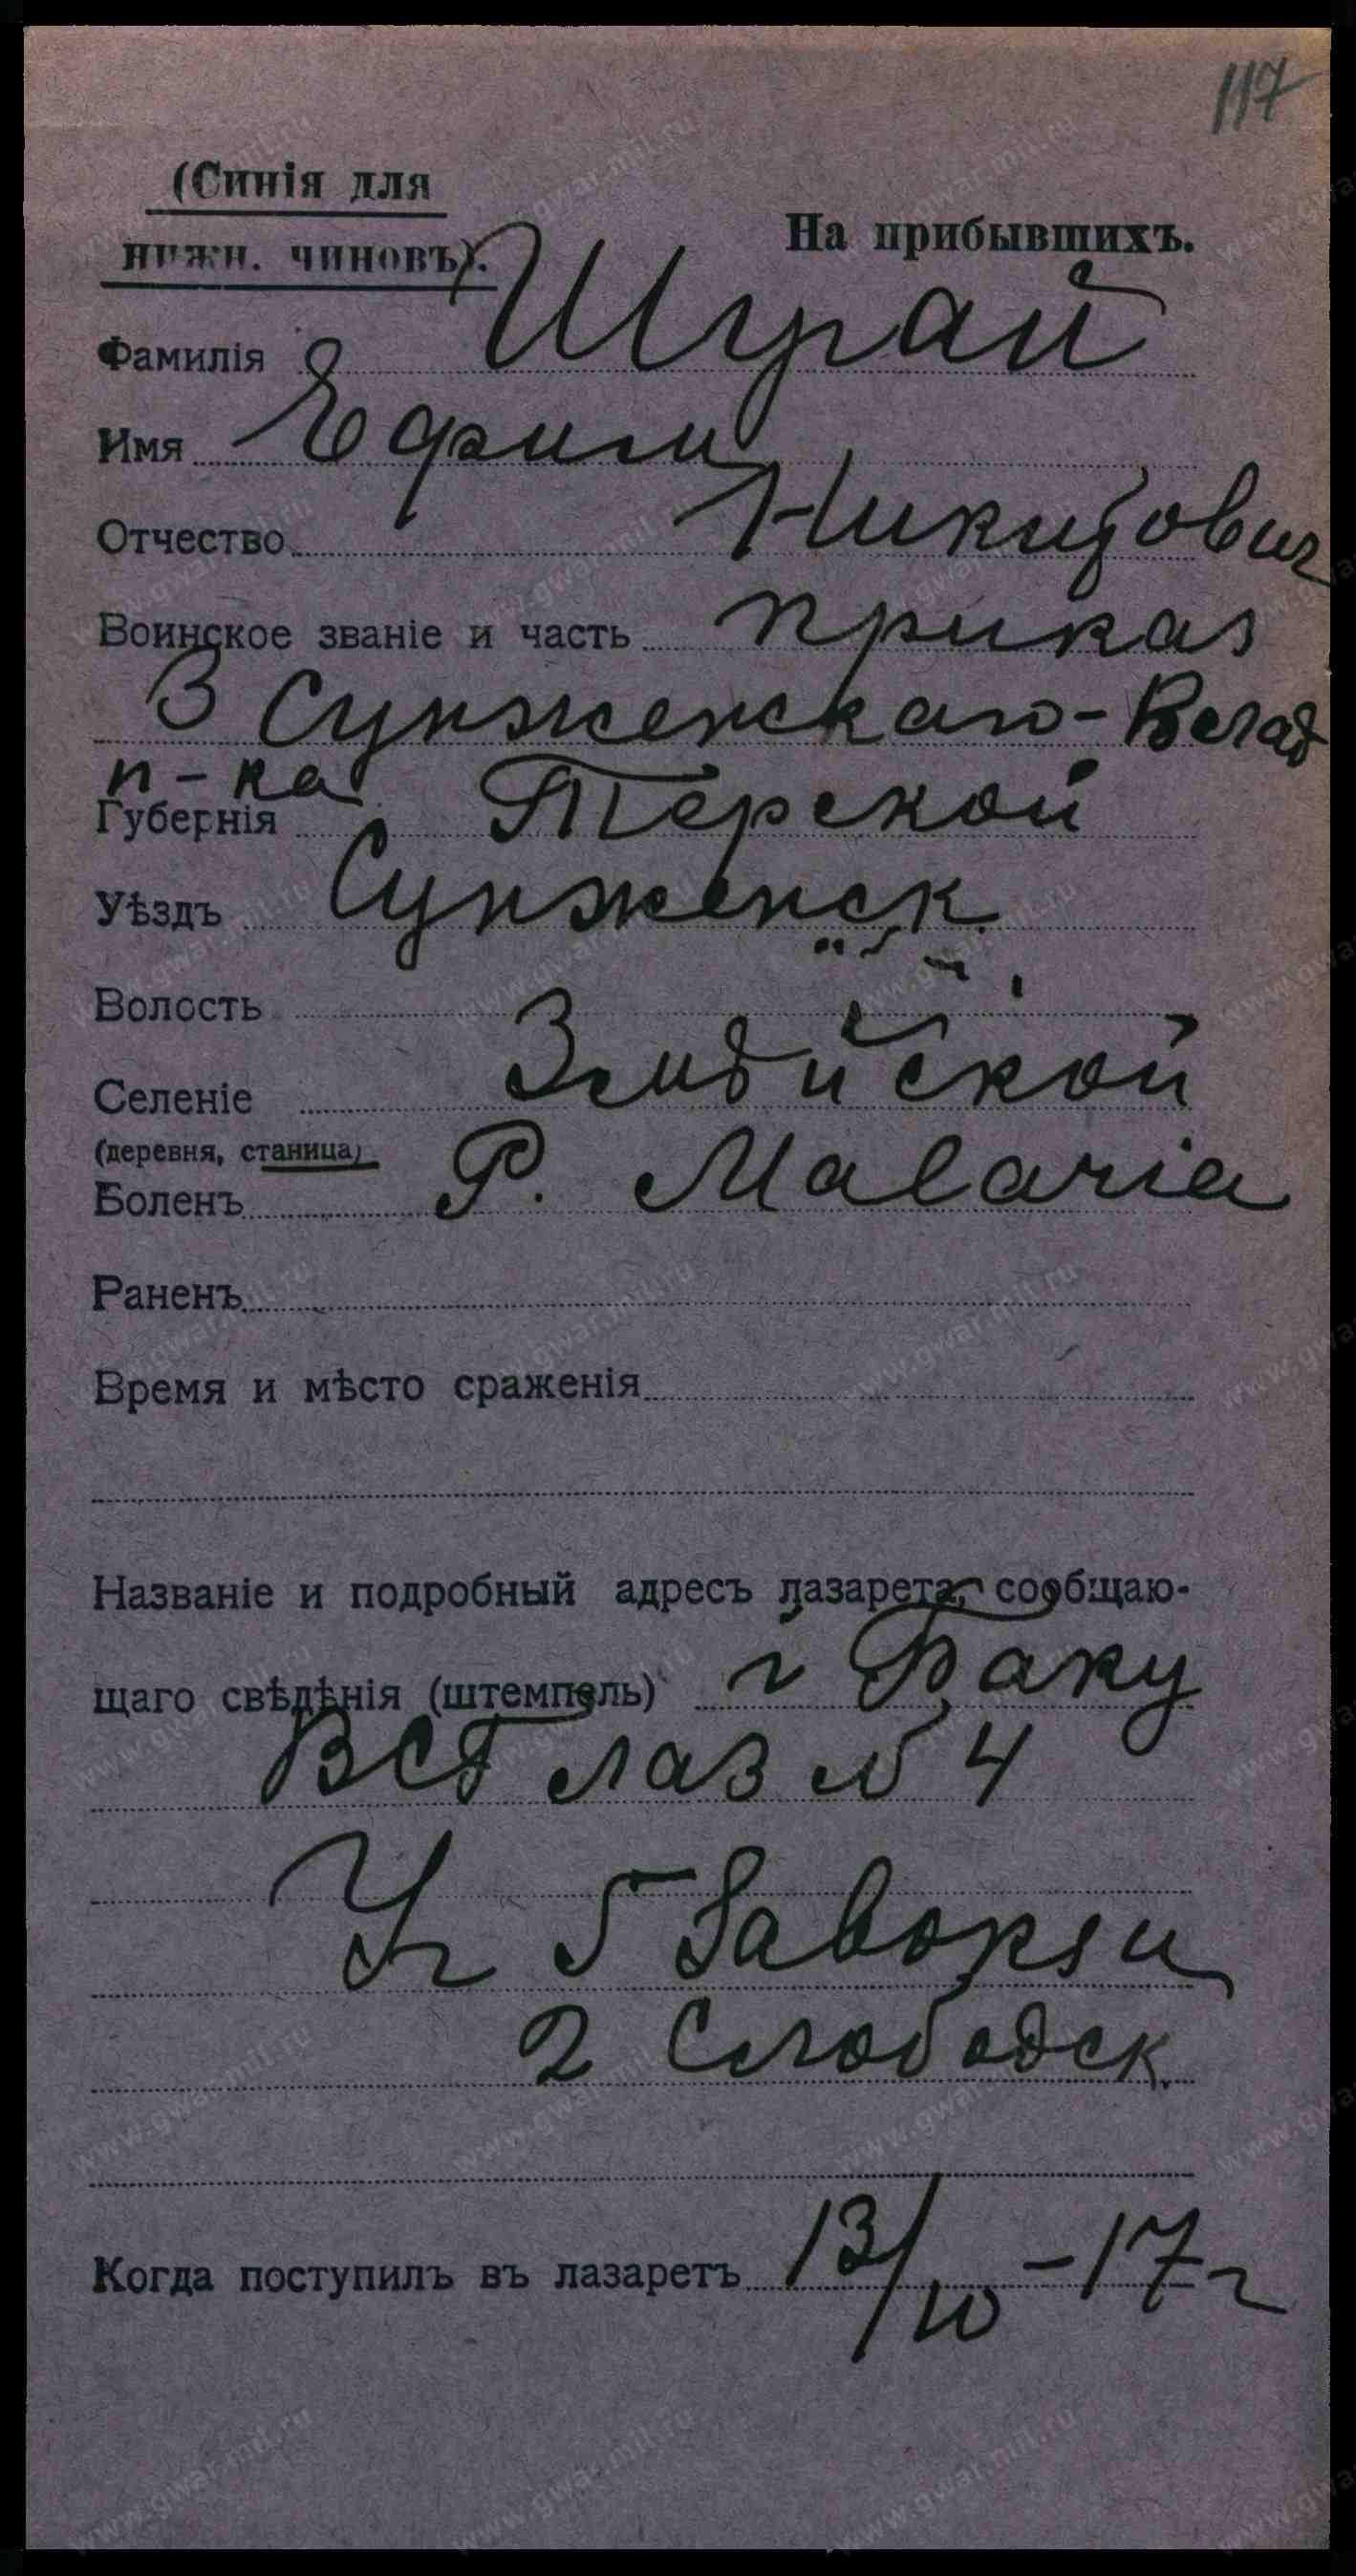 117
(Синія для
нижн. чиновъ).
На прибывшихъ.
Фамилія Шурай
Имя Ефим
Отчество Никитович
Воинское званіе и часть приказ
3 Сунженскаго-Влад
п-ка
Губернія Терской
Уѣздъ Сунженск
Волость
Селеніе Змейской
(деревня, станица)
Боленъ Malaria
Раненъ
Время и мѣсто сраженія
Названіе и подробный адресъ лазарета, сообщаю-
щаго свѣдѣнія (штемпель) г Баку
ВСГ лаз № 4
Уг 5 Завокзи
2 Слободск.
Когда поступилъ въ лазаретъ 13/10 -17 г